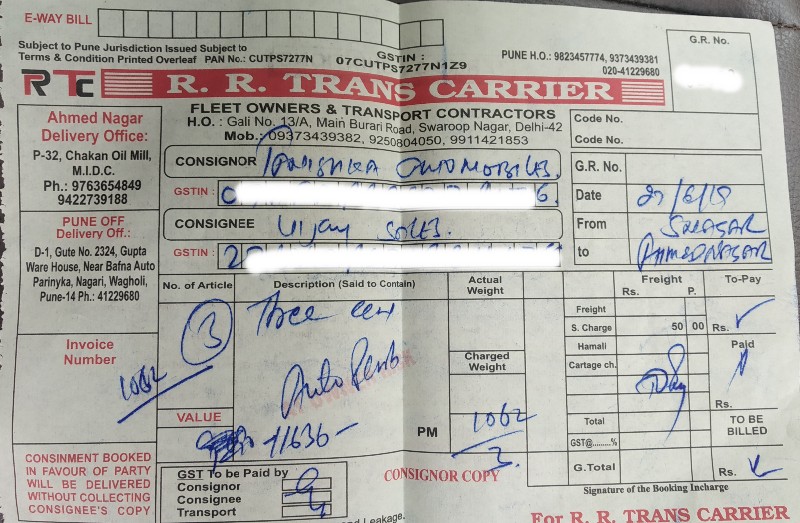 E-WAY BILL
G.R. No.
Subject to Pune Jurisdiction Issued Subject to
Terms & Condition Printed Overleaf PAN No.: CUTPS7277N
GSTIN :
07CUTPS7277N1Z9
PUNE H.O.: 9823457774, 9373439381
020-41229680
RTC R. R. TRANS CARRIER
FLEET OWNERS & TRANSPORT CONTRACTORS
H.O. : Gali No. 13/A, Main Burari Road, Swaroop Nagar, Delhi-42
Mob.: 09373439382, 9250804050, 9911421853
Ahmed Nagar
Delivery Office:
P-32, Chakan Oil Mill,
M.I.D.C.
Ph.: 9763654849
9422739188
PUNE OFF
Delivery Off.:
D-1, Gute No. 2324, Gupta
Ware House, Near Bafna Auto
Parinyka, Nagari, Wagholi,
Pune-14 Ph.: 41229680
CONSIGNOR AUTOMOBILES.
GSTIN :
CONSIGNEE Vijay Sales.
GSTIN : 2
Code No.
Code No.
G.R. No.
Date
From
to AHMEDNAGAR
No. of Article
Description (Said to Contain)
Actual
Weight
Freight
Rs. P.
To-Pay
3
Three
Auto
Freight
S. Charge 50 00
Rs.
Hamali
Paid
Cartage ch.
Charged
Weight
Rs.
Invoice
Number
1062
VALUE
11636-
PM
1062
3
Total
TO BE
BILLED
GST@.......%
G.Total
Rs.
CONSINMENT BOOKED
IN FAVOUR OF PARTY
WILL BE DELIVERED
WITHOUT COLLECTING
CONSIGNEE'S COPY
GST To be Paid by
Consignor
Consignee
Transport
CONSIGNOR COPY
Signature of the Booking Incharge
For R. R. TRANS CARRIER
Leakage.